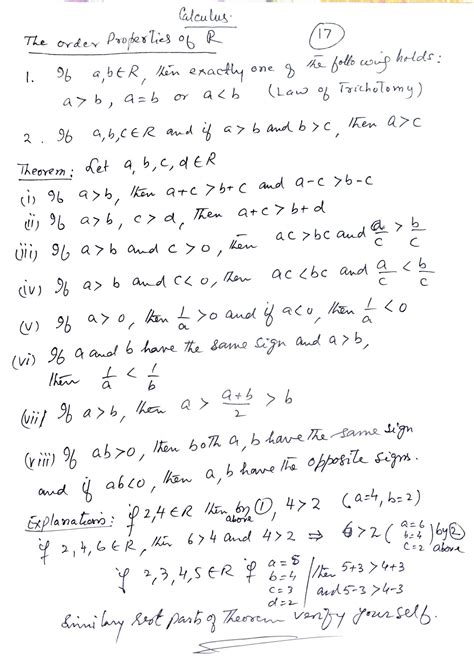 Calculus.
The order Properties of R
17
1. If a,b∈R, then exactly one of the following holds:
a>b, a=b or a<b (Law of Trichotomy)
2. If a,b,c∈R and if a>b and b>c, then a>c
Theorem: Let a,b,c,d∈R
(i) If a>b, then a+c>b+c and a-c>b-c
(ii) If a>b, c>d, Then a+c>b+d
(iii) If a>b and c>0, then ac>bc and a/c > b/c
(iv) If a>b and c<0, then ac<bc and a/c < b/c
(v) If a>0, then 1/a >0 and if a<0, then 1/a <0
(vi) If a and b have the same sign and a>b,
then 1/a < 1/b
(vii) If a>b, then a > a+b/2 > b
(viii) If ab>0, then both a,b have the same sign
and if ab<0, then a,b have the opposite signs.
Explanations: if 2,4∈R then by ① above, 4>2 (a=4, b=2)
if 2,4,6∈R, then 6>4 and 4>2 ⇒ 6>2 (a=6 b=4 c=2) by ② above
if 2,3,4,5∈R if a=5 b=4 c=3 d=2 / then 5+3>4+3
and 5-3>4-3
Similary rest parts of Theorem verify yourself.